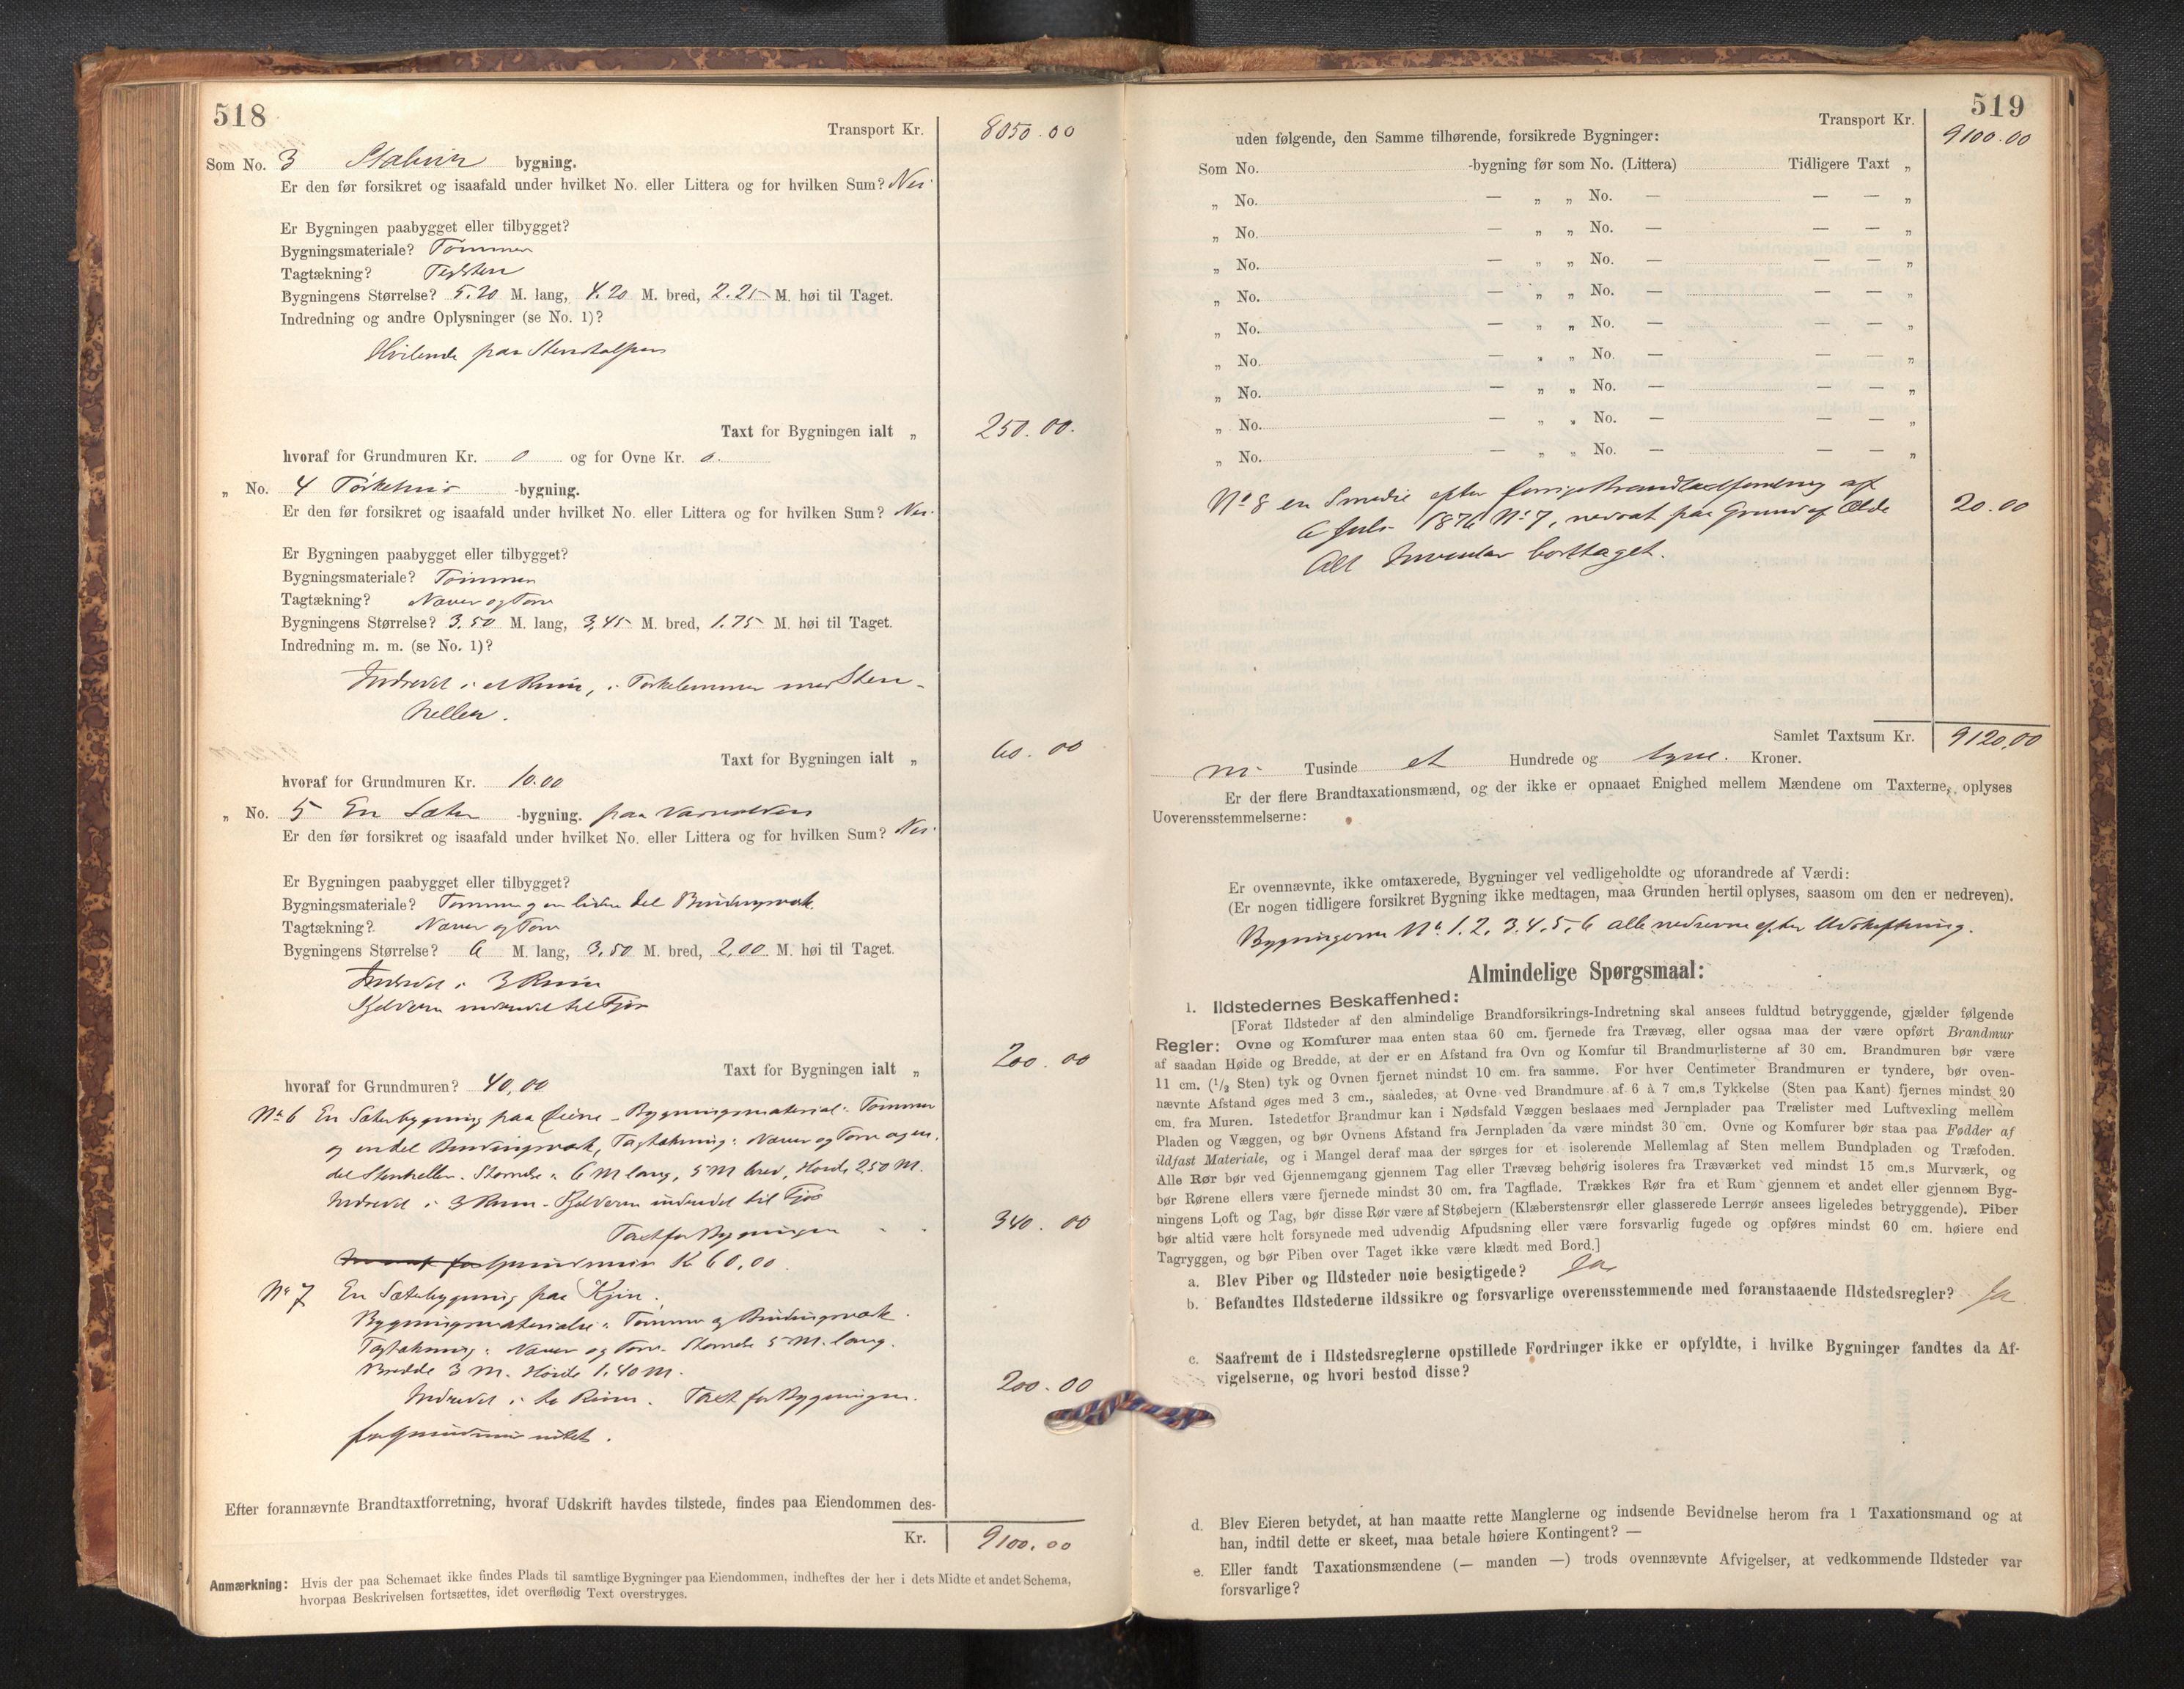 518
Transport Kr. 8050.00
Som No. 3 bygning.
Er den før forsikret og isaafald under hvilket No. eller Littera og for hvilken Sum? Nei.
Er Bygningen paabygget eller tilbygget?
Bygningsmateriale? Tømmer
Tagtækning? Teglsten
Bygningens Størrelse? 5.20 M. lang, 4.20 M. bred, 2.25 M. høi til Taget.
Indredning og andre Oplysninger (se No. 1)?
Hvilende paa Stenstolper
Taxt for Bygningen ialt „ 250.00.
hvoraf for Grundmuren Kr. 0 og for Ovne Kr. 0.
„ No. 4 Tørkehus -bygning.
Er den før forsikret og isaafald under hvilket No. eller Littera og for hvilken Sum? Nei.
Er Bygningen paabygget eller tilbygget?
Bygningsmateriale? Tømmer
Tagtækning? Næver og Torv
Bygningens Størrelse? 3.50 M. lang, 3,45 M. bred, 1.75 M. høi til Taget.
Indredning m. m. (se No. 1)?
Indredet i et Rum, i Tørkelemmer med Sten-
heller.
Taxt for Bygningen ialt „ 60.00
hvoraf for Grundmuren Kr. 10.00
„ No. 5 En Sæter -bygning. paa
Er den før forsikret og isaafald under hvilket No. eller Littera og for hvilken Sum? Nei.
Er Bygningen paabygget eller tilbygget?
Bygningsmateriale? Tømmer og en liden del Bindingsværk.
Tagtækning? Næver og Torv
Bygningens Størrelse? 6 M. lang, 3,50 M. bred, 2,00 M. høi til Taget.
Indredet i 3 Rum
Kjelderen indredet til Fjøs
Taxt for Bygningen ialt „ 200.00
hvoraf for Grundmuren? 40,00
No 6 En Sæterbygning paa - Bygningsmateriel: Tømmer
og endel Bindingsværk, Tagtækning: Næver og Torv og en
del Stenheller. Størrelse: 6 M lang, 5 M bred, Høide 2.50 M.
Indredet i 3 Rum - Kjelderen indredet til Fjøs
Taxt for Bygningen 340.00
hvoraf for Grundmuren Kr 60,00.
No 7 En Sæterbygning paa Kjin.
Bygningsmateriale: Tømmer og Bindingsværk.
Tagtækning: Næver og Torv. Størrelse 5 M. lang.
Bredde 3 M. Høide 1.40 M.
Indredet i to Rum. Taxt for Bygningen. 200.00
for Grundmur intet.
Efter forannævnte Brandtaxtforretning, hvoraf Udskrift havdes tilstede, findes paa Eiendommen des-
Kr. 9100.00
Anmærkning: Hvis der paa Schemaet ikke findes Plads til samtlige Bygninger paa Eiendommen, indheftes der her i dets Midte et andet Schema,
hvorpaa Beskrivelsen fortsættes, idet overflødig Text overstryges.
519
Transport Kr. 9100.00
uden følgende, den Samme tilhørende, forsikrede Bygninger:
Som No. -bygning før som No. (Littera) Tidligere Taxt „
„ No. — „ „ No. — — — „
„ No. — „ „ No. — — — „
„ No. — „ „ No. — — — „
„ No. — „ „ No. — — — „
„ No. — „ „ No. — — — „
„ No. — „ „ No. — — — „
„ No. — „ „ No. — — — „
„ No. — „ „ No. — — — „
„ No. — „ „ No. — — — „
No 8 en Smedie efter forrige Brandtaxtforretning af
6 Juli 1876 No 7, nedsat paa Grund af Ælde 20.00
Alt Inventar borttaget.
Samlet Taxtsum Kr. 9120,00
ni Tusinde et Hundrede og tyve. Kroner.
Er der flere Brandtaxationsmænd, og der ikke er opnaaet Enighed mellem Mændene om Taxterne, oplyses
Uoverensstemmelserne:
Er ovennævnte, ikke omtaxerede, Bygninger vel vedligeholdte og uforandrede af Værdi:
(Er nogen tidligere forsikret Bygning ikke medtagen, maa Grunden hertil oplyses, saasom om den er nedreven).
Bygningerne No. 1.2.3.4.5.6 alle nedrevne efter Udskiftning.
Almindelige Spørgsmaal:
1. Ildstedernes Beskaffenhed:
[Forat Ildsteder af den almindelige Brandforsikrings-Indretning skal ansees fuldtud betryggende, gjælder følgende
Regler: Ovne og Komfurer maa enten staa 60 cm. fjernede fra Trævæg, eller ogsaa maa der være opført Brandmur
af saadan Høide og Bredde, at der er en Afstand fra Ovn og Komfur til Brandmurlisterne af 30 cm. Brandmuren bør være
11 cm. (1/2 Sten) tyk og Ovnen fjernet mindst 10 cm. fra samme. For hver Centimeter Brandmuren er tyndere, bør oven-
nævnte Afstand øges med 3 cm., saaledes, at Ovne ved Brandmure af 6 à 7 cm.s Tykkelse (Sten paa Kant) fjernes mindst 20
cm. fra Muren. Istedetfor Brandmur kan i Nødsfald Væggen beslaaes med Jernplader paa Trælister med Luftvexling mellem
Pladen og Væggen, og bør Ovnens Afstand fra Jernpladen da være mindst 30 cm. Ovne og Komfurer bør staa paa Fødder af
ildfast Materiale, og i Mangel deraf maa der sørges for et isolerende Mellemlag af Sten mellem Bundpladen og Træfoden.
Alle Rør bør ved Gjennemgang gjennem Tag eller Trævæg behørig isoleres fra Træværket ved mindst 15 cm.s Murværk, og
bør Rørene ellers være fjernede mindst 30 cm. fra Tagflade. Trækkes Rør fra et Rum gjennem et andet eller gjennem Byg-
ningens Loft og Tag, bør disse Rør være af Støbejern (Klæberstensrør eller glasserede Lerrør ansees ligeledes betryggende). Piber
bør altid være helt forsynede med udvendig Afpudsning eller være forsvarlig fugede og opføres mindst 60 cm. høiere end
Tagryggen, og bør Piben over Taget ikke være klædt med Bord.]
a. Blev Piber og Ildsteder nøie besigtigede? Ja.
b. Befandtes Ildstederne ildssikre og forsvarlige overensstemmende med foranstaaende Ildstedsregler? Ja
c. Saafremt de i Ildstedsreglerne opstillede Fordringer ikke er opfyldte, i hvilke Bygninger fandtes da Af-
vigelserne, og hvori bestod disse?
d. Blev Eieren betydet, at han maatte rette Manglerne og indsende Bevidnelse herom fra 1 Taxationsmand og at
han, indtil dette er skeet, maa betale høiere Kontingent? —
e. Eller fandt Taxationsmændene (— manden —) trods ovennævnte Afvigelser, at vedkommende Ildsteder var
forsvarlige?